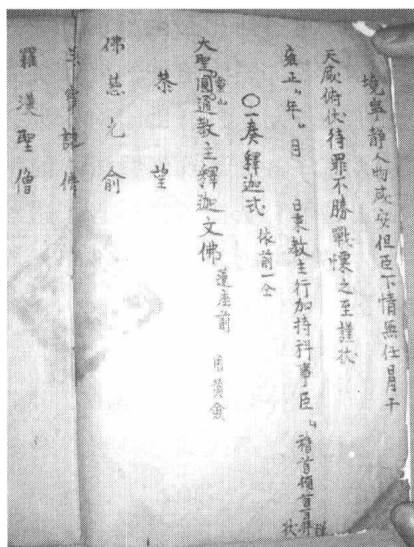 境寧靜人物咸安但臣下情無任冒干
天威俯伏待罪不勝戰慄之至謹狀
雍正〃年〃月 日秉教主行加持科事臣〃稽首頓首再拜狀
〇一奏釋迦式 依前一仝
大聖靈山圓通教主釋迦文佛 蓮座前 用黃僉
恭望
佛慈允俞
羅漢聖僧